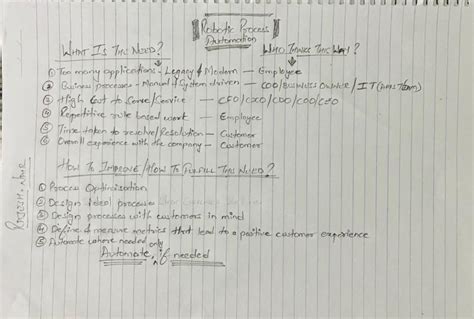 Robotic Process
Automation
What Is This Need?
Who Thinks This Way?
① Too many applications - Legacy & Modern - Employee
② Business processes - Manual & System driven - COO/Business Owner/IT
③ High Cost to Serve/Service - CFO/CXO/CDO/COO/CEO
④ Repetitive rule based work - Employee
⑤ Time taken to resolve/Resolution - Customer
⑥ Overall experience with the company - Customer
How To Improve/How To Fulfill This Need?
① Process Optimisation
② Design Ideal process
③ Design processes with customers in mind
④ Define & measure metrics that lead to a positive customer experience
⑤ Automate where needed only
Automate, if needed